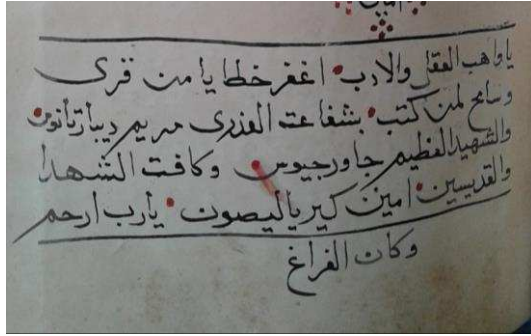 يا واهب العقل والادب • اغفر خطا يا من قرى
وسامح لمن كتب • بشفاعت العذرى مريم ديبارتانوس
والشهيد العظيم جاورجيوس وكافت الشهدا
والقديسين • امين كيرياليصون • يارب ارحم
وكان الفراغ